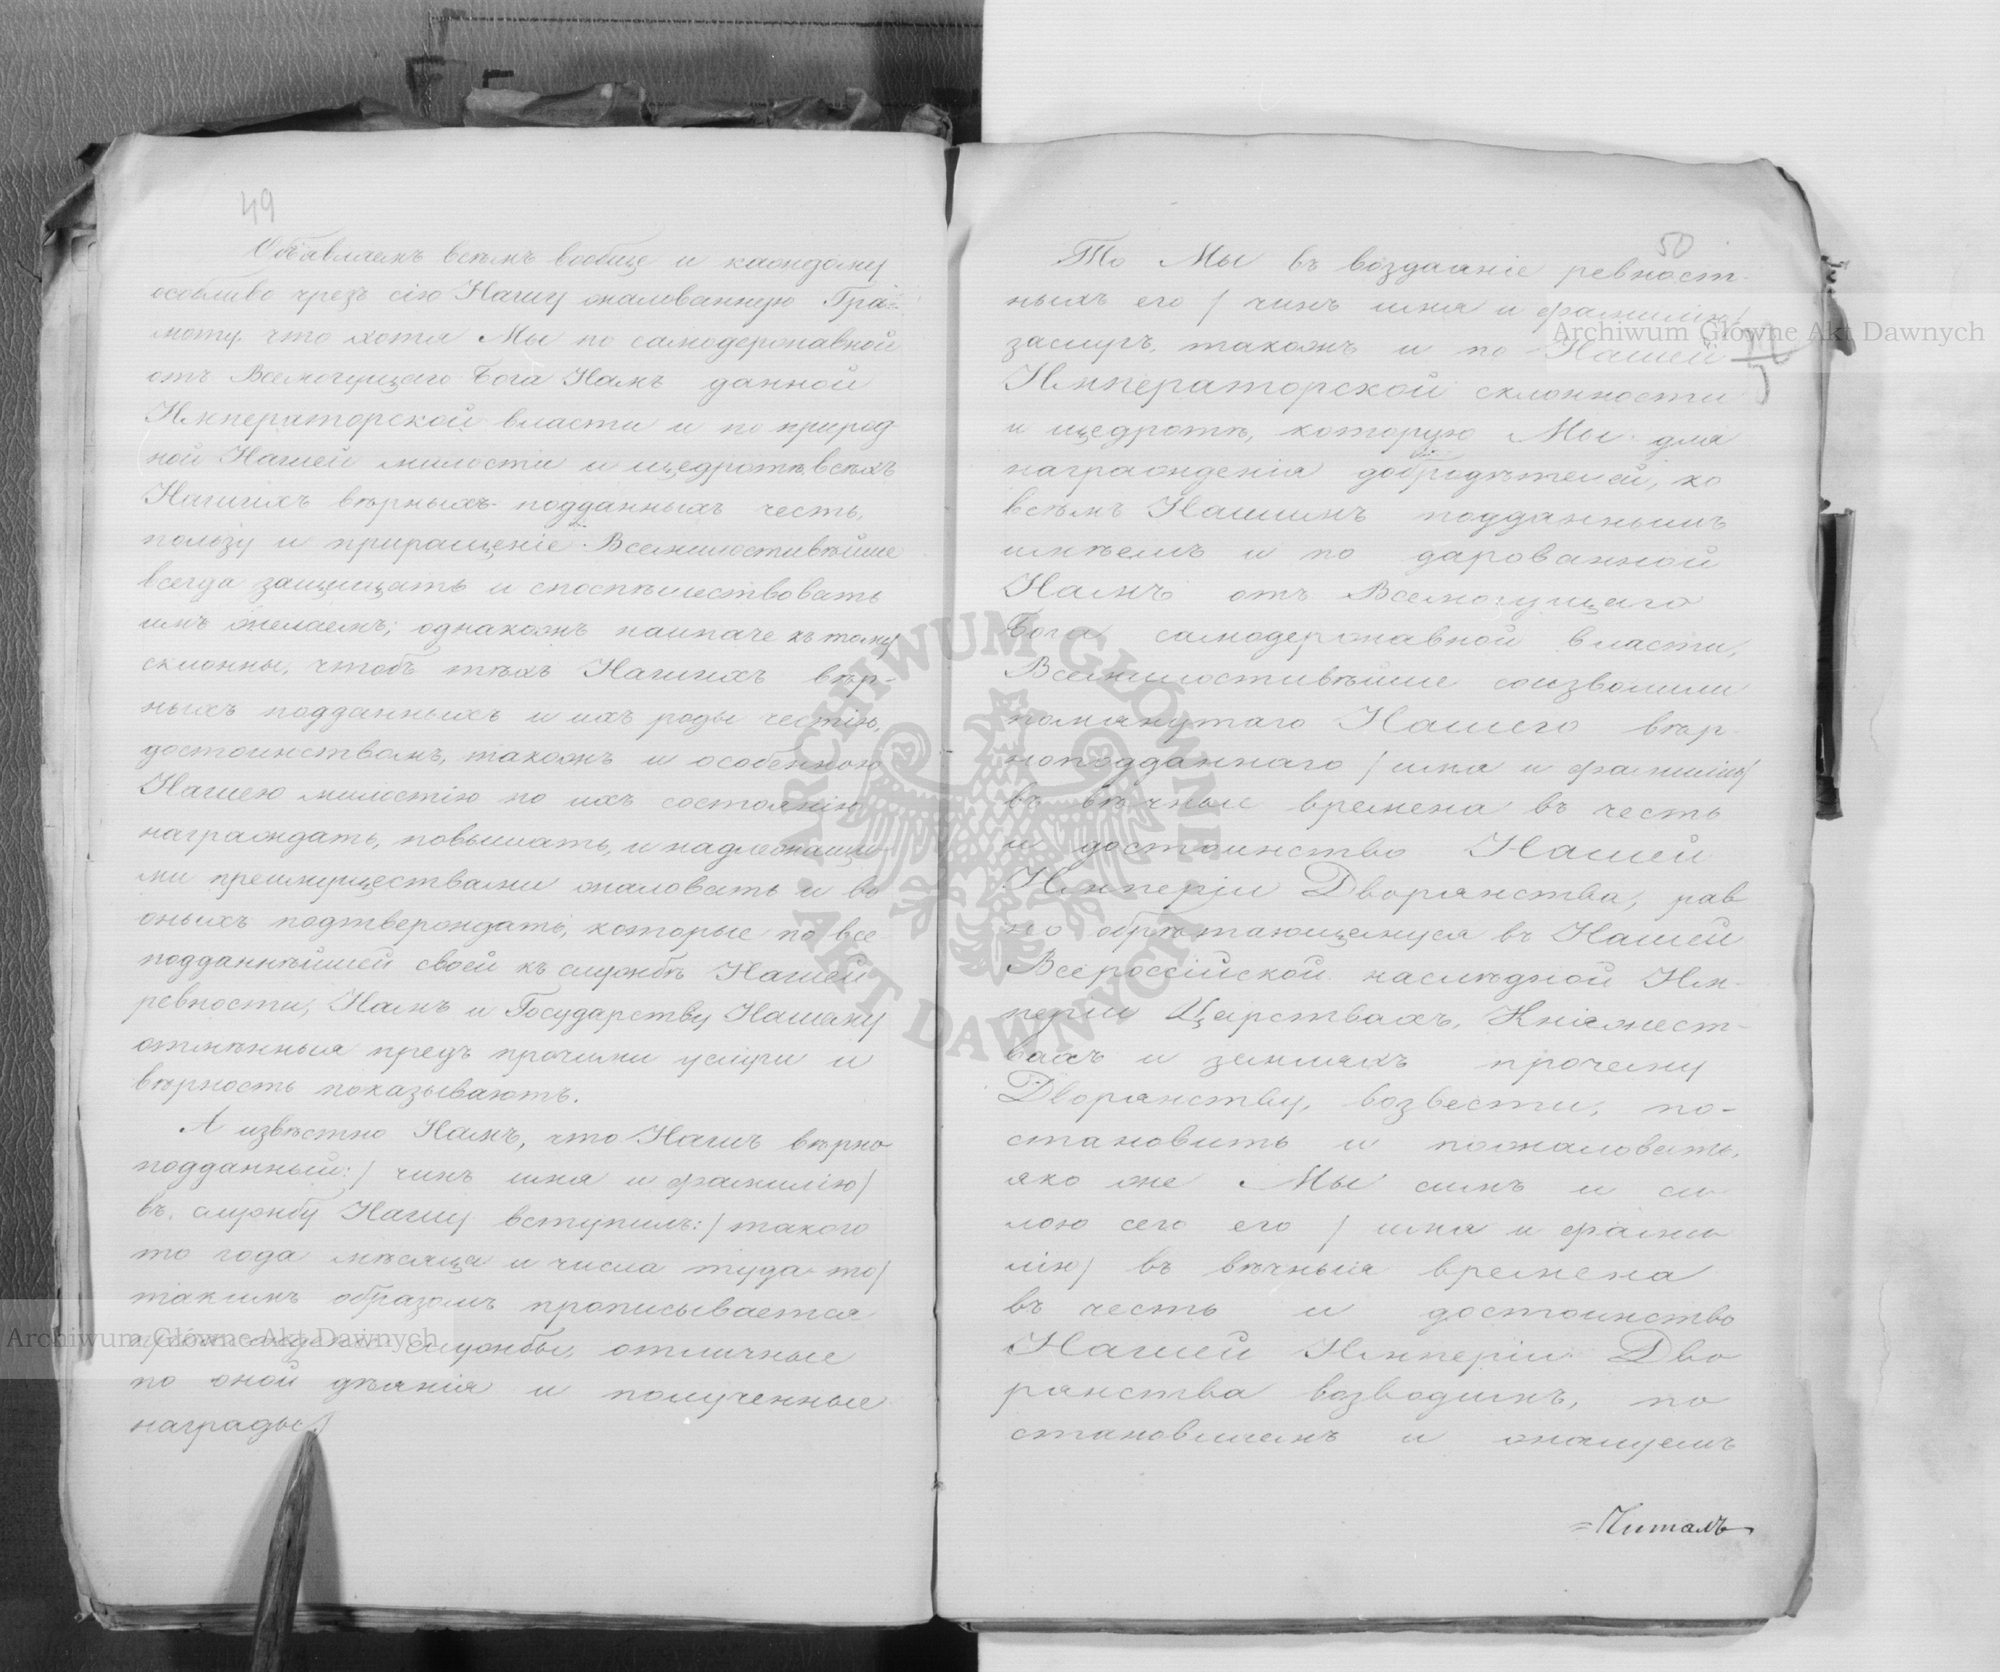 49
Объявляемъ всѣмъ вообще и каждому
особливо чрезъ сію Нашу жалованную Гра-
моту, что хотя Мы по самодержавной
отъ Всемогущаго Бога Намъ данной
Императорской власти и по природ
ной Нашей милости и щедротѣ, всѣхъ
Нашихъ вѣрныхъ подданныхъ честь,
пользу и приращеніе Всемилостивѣйше
всегда защищать и споспѣшествовать
имъ желаемъ; однакожъ наипаче къ тому
склонны, чтобъ тѣхъ Нашихъ вѣр-
ныхъ подданныхъ и ихъ роды честію,
достоинствомъ, такожъ и особенною
Нашею милостію по ихъ состоянію
награждать, повышать, и надлежащи-
ми преимуществами жаловать и во
оныхъ подтверждать, которые по все
подданнѣйшей своей къ службѣ Нашей
ревности, Намъ и Государству Нашему
отмѣнныя предъ прочими услуги и
вѣрность показываютъ.
А извѣстно Намъ, что Нашъ вѣрно
подданный: / чинъ имя и фамилію /
въ службу Нашу вступилъ: / такого
то года мѣсяца и числа туда-то /
такимъ образомъ прописывается
службы, отличные
по оной дѣянія и полученные
награды /
50
То Мы въ воздаяніе ревност-
ныхъ его / чинъ имя и фамилію /
заслугъ, такожъ и по Нашей
Императорской склонности
и щедротѣ, которую Мы для
награжденія добродѣтелей, ко
всѣмъ Нашимъ подданнымъ
имѣемъ и по дарованной
Намъ отъ Всемогущаго
Бога самодержавной власти,
Всемилостивѣйше соизволили
помянутаго Нашего вѣр
ноподданнаго / имя и фамилію /
въ вѣчные времена въ честь
и достоинство Нашей
Имперіи Дворянства, рав
но обрѣтающемуся въ Нашей
Всероссійской наслѣдной Им-
періи Царствахъ, Княжест-
вахъ и земляхъ прочему
Дворянству, возвести, по-
становить и пожаловать,
яко же Мы симъ и си
лою сего его / имя и фами
лію / въ вѣчныя времена
въ честь и достоинство
Нашей Имперіи Дво
рянства возводимъ, по
становляемъ и жалуемъ
=Читалъ
Archiwum Główne Akt Dawnych
Archiwum Główne Akt Dawnych
ARCHIWUM GŁÓWNE AKT DAWNYCH